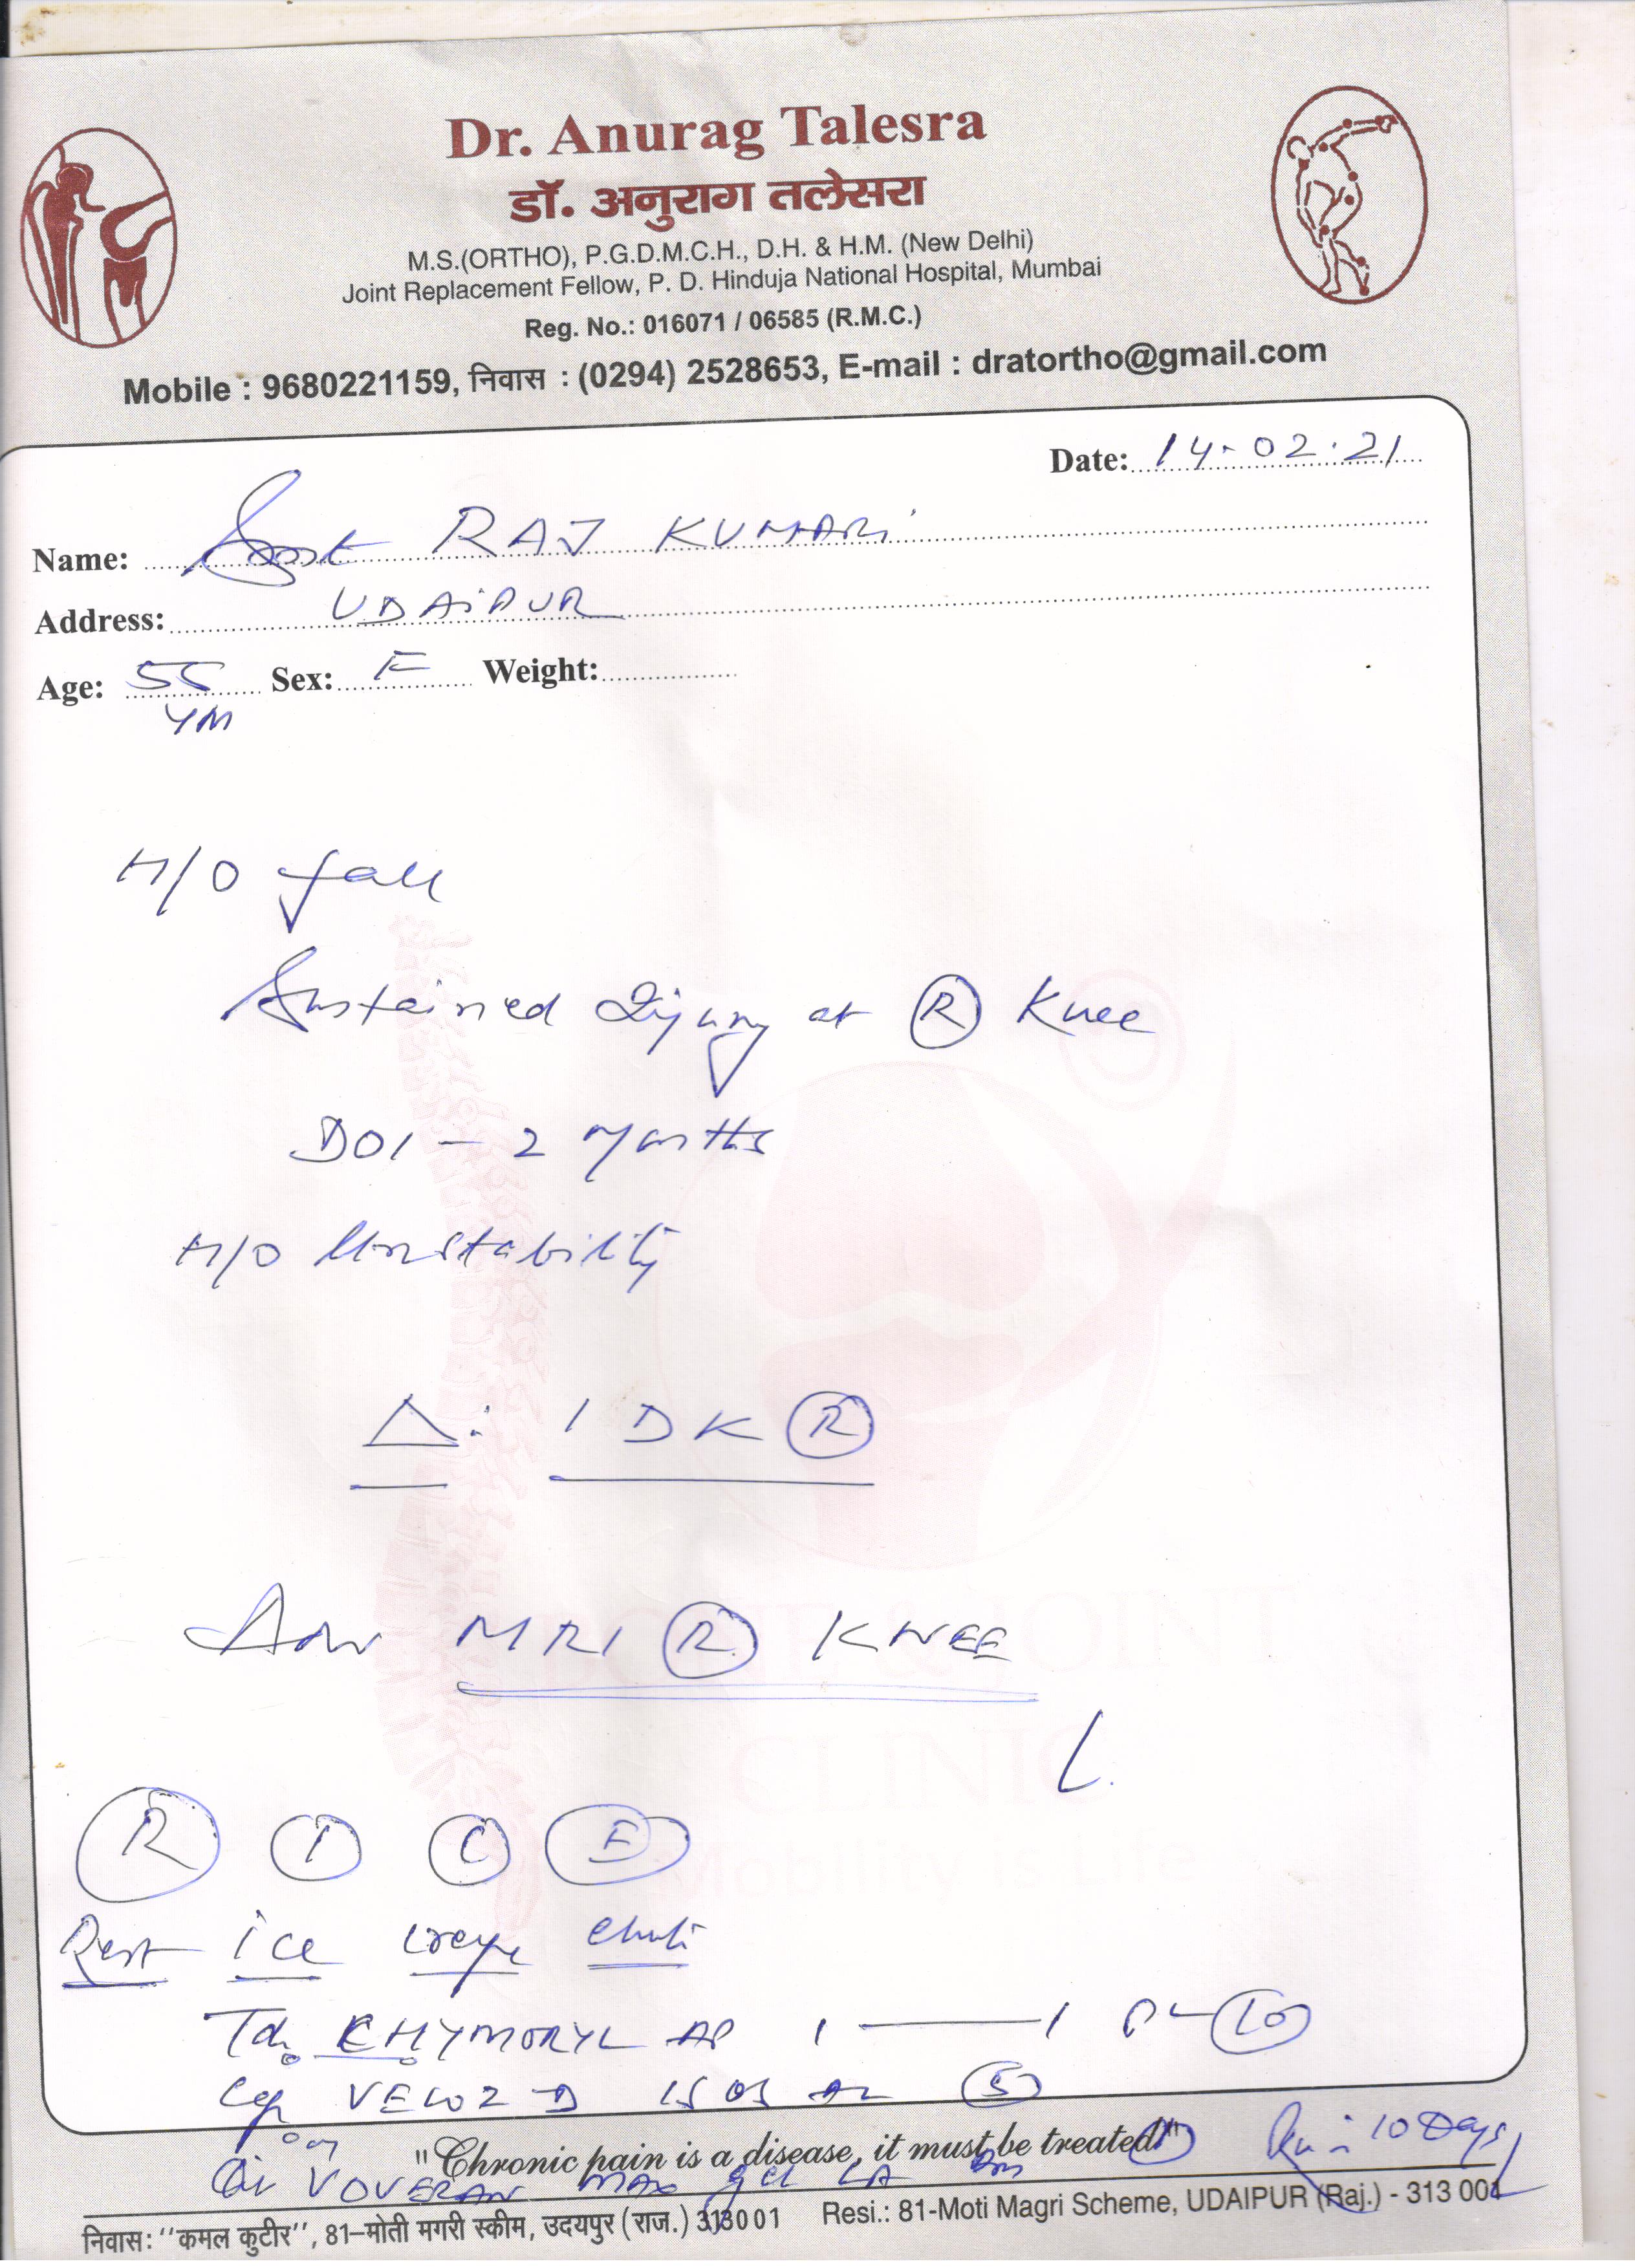 Dr. Anurag Talesra
डॉ. अनुराग तलेसरा
M.S.(ORTHO), P.G.D.M.C.H., D.H. & H.M. (New Delhi)
Joint Replacement Fellow, P. D. Hinduja National Hospital, Mumbai
Reg. No.: 016071 / 06585 (R.M.C.)
Mobile : 9680221159, निवास : (0294) 2528653, E-mail : dratortho@gmail.com
Date: 14-02-21
Name: RAJ KUMARi
Address: UDAiPUR
Age: 55 Sex: F Weight:
H/O fall
Sustained Injury at R Knee
DOI - 2 Months
H/O Unstability
Δ: IDK R
Adv MRI R KNEE
R I C E
Rest ice crepe
CHYMORYL AP 1 — 1 10
Cap VELOZ D 5
"Chronic pain is a disease, it must be treated" 1 10 Days
VOVERAN MAX gel LA
निवास: ''कमल कुटीर'', 81-मोती मगरी स्कीम, उदयपुर (राज.) 313001 Resi.: 81-Moti Magri Scheme, UDAIPUR (Raj.) - 313 001
CLINIC
Mobility is Life